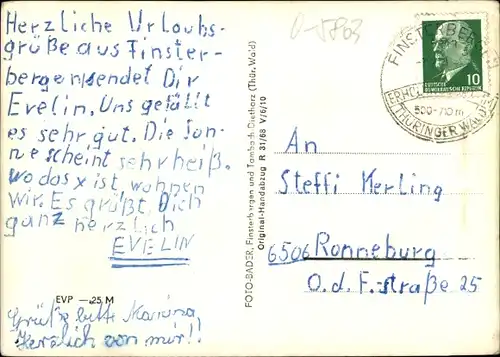 Herzliche Urlaubs-
grüße aus Finster-
bergen sendet Dir
Evelin. Uns gefällt
es sehr gut. Die Son-
ne scheint sehr heiß.
wo das x ist, wohnen
wir. Es grüßt Dich
ganz herzlich
EVELIN
EVP —.25 M
Grüße bitte
Herzlich von mir!
FOTO-BADER, Finsterbergen und Tambach-Dietharz (Thür. Wald)
Original-Handabzug R 31/68 V/6/10
0-5803
FINSTERBERGEN
500-710 m
THÜRINGER WALD
10
DEUTSCHE
DEMOKRATISCHE REPUBLIK
An
Steffi Merling
6506 Ronneburg
O.d.F.straße 25